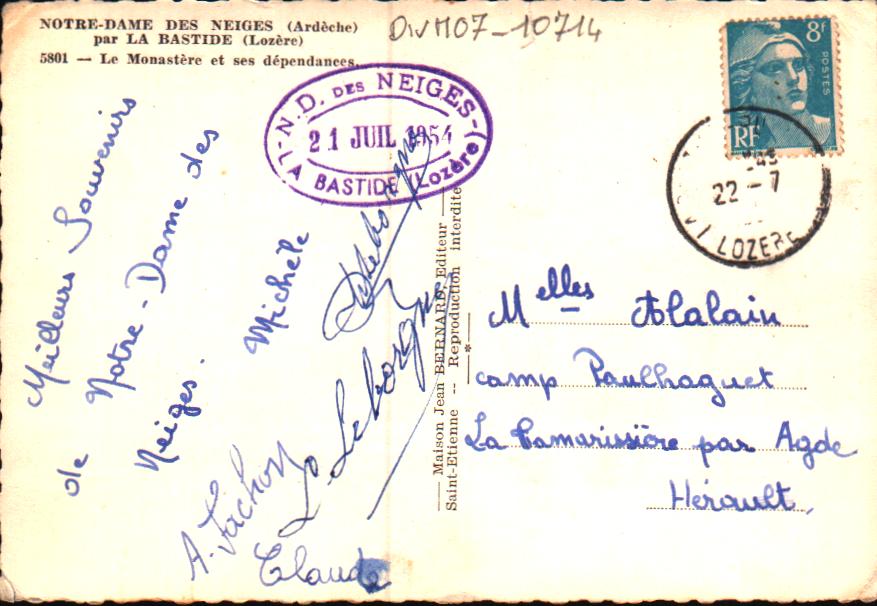 NOTRE-DAME DES NEIGES (Ardèche)
par LA BASTIDE (Lozère)
5801 — Le Monastère et ses dépendances.
DIVM07-10714
N.D. DES NEIGES
21 JUIL 1954
LA BASTIDE (Lozère)
8f
POSTES
RF
22-7
LOZERE
Meilleurs Souvenirs
de Notre-Dame des
Neiges.
Michèle
Leborgne
A. Fachon
Claude
— Maison Jean BERNARD, Editeur —
Saint-Etienne -- Reproduction interdite
Melles Alalain
camp Paulhaguet
La Tamarissière par Agde
Hérault.